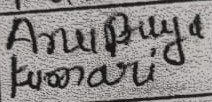 Anu Priya
Kumari